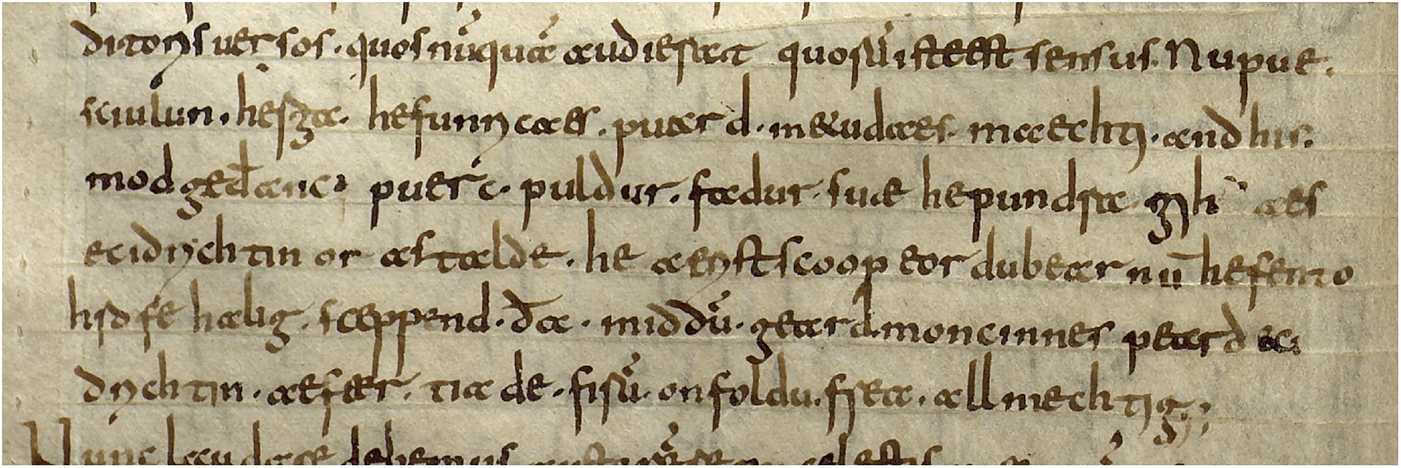 ditoris uersos. quos nūquā audierat quorū iste est sensus. Nu pue.
sciulun. herga. hefunricaes. puard. metudaes. maechti. and his.
modgedanc. puerc. puldur. fadur. suae he pundra gih aes
eci drichtin or astalde. he aerist scoop eordu bearnū hefen to
hrofe halig. sceppend. đa. middū. geard. moncinnes peard eci
drichtin. aefter. tia de. firū. on foldu. frea. allmechtig;
Nunc laudare debemus